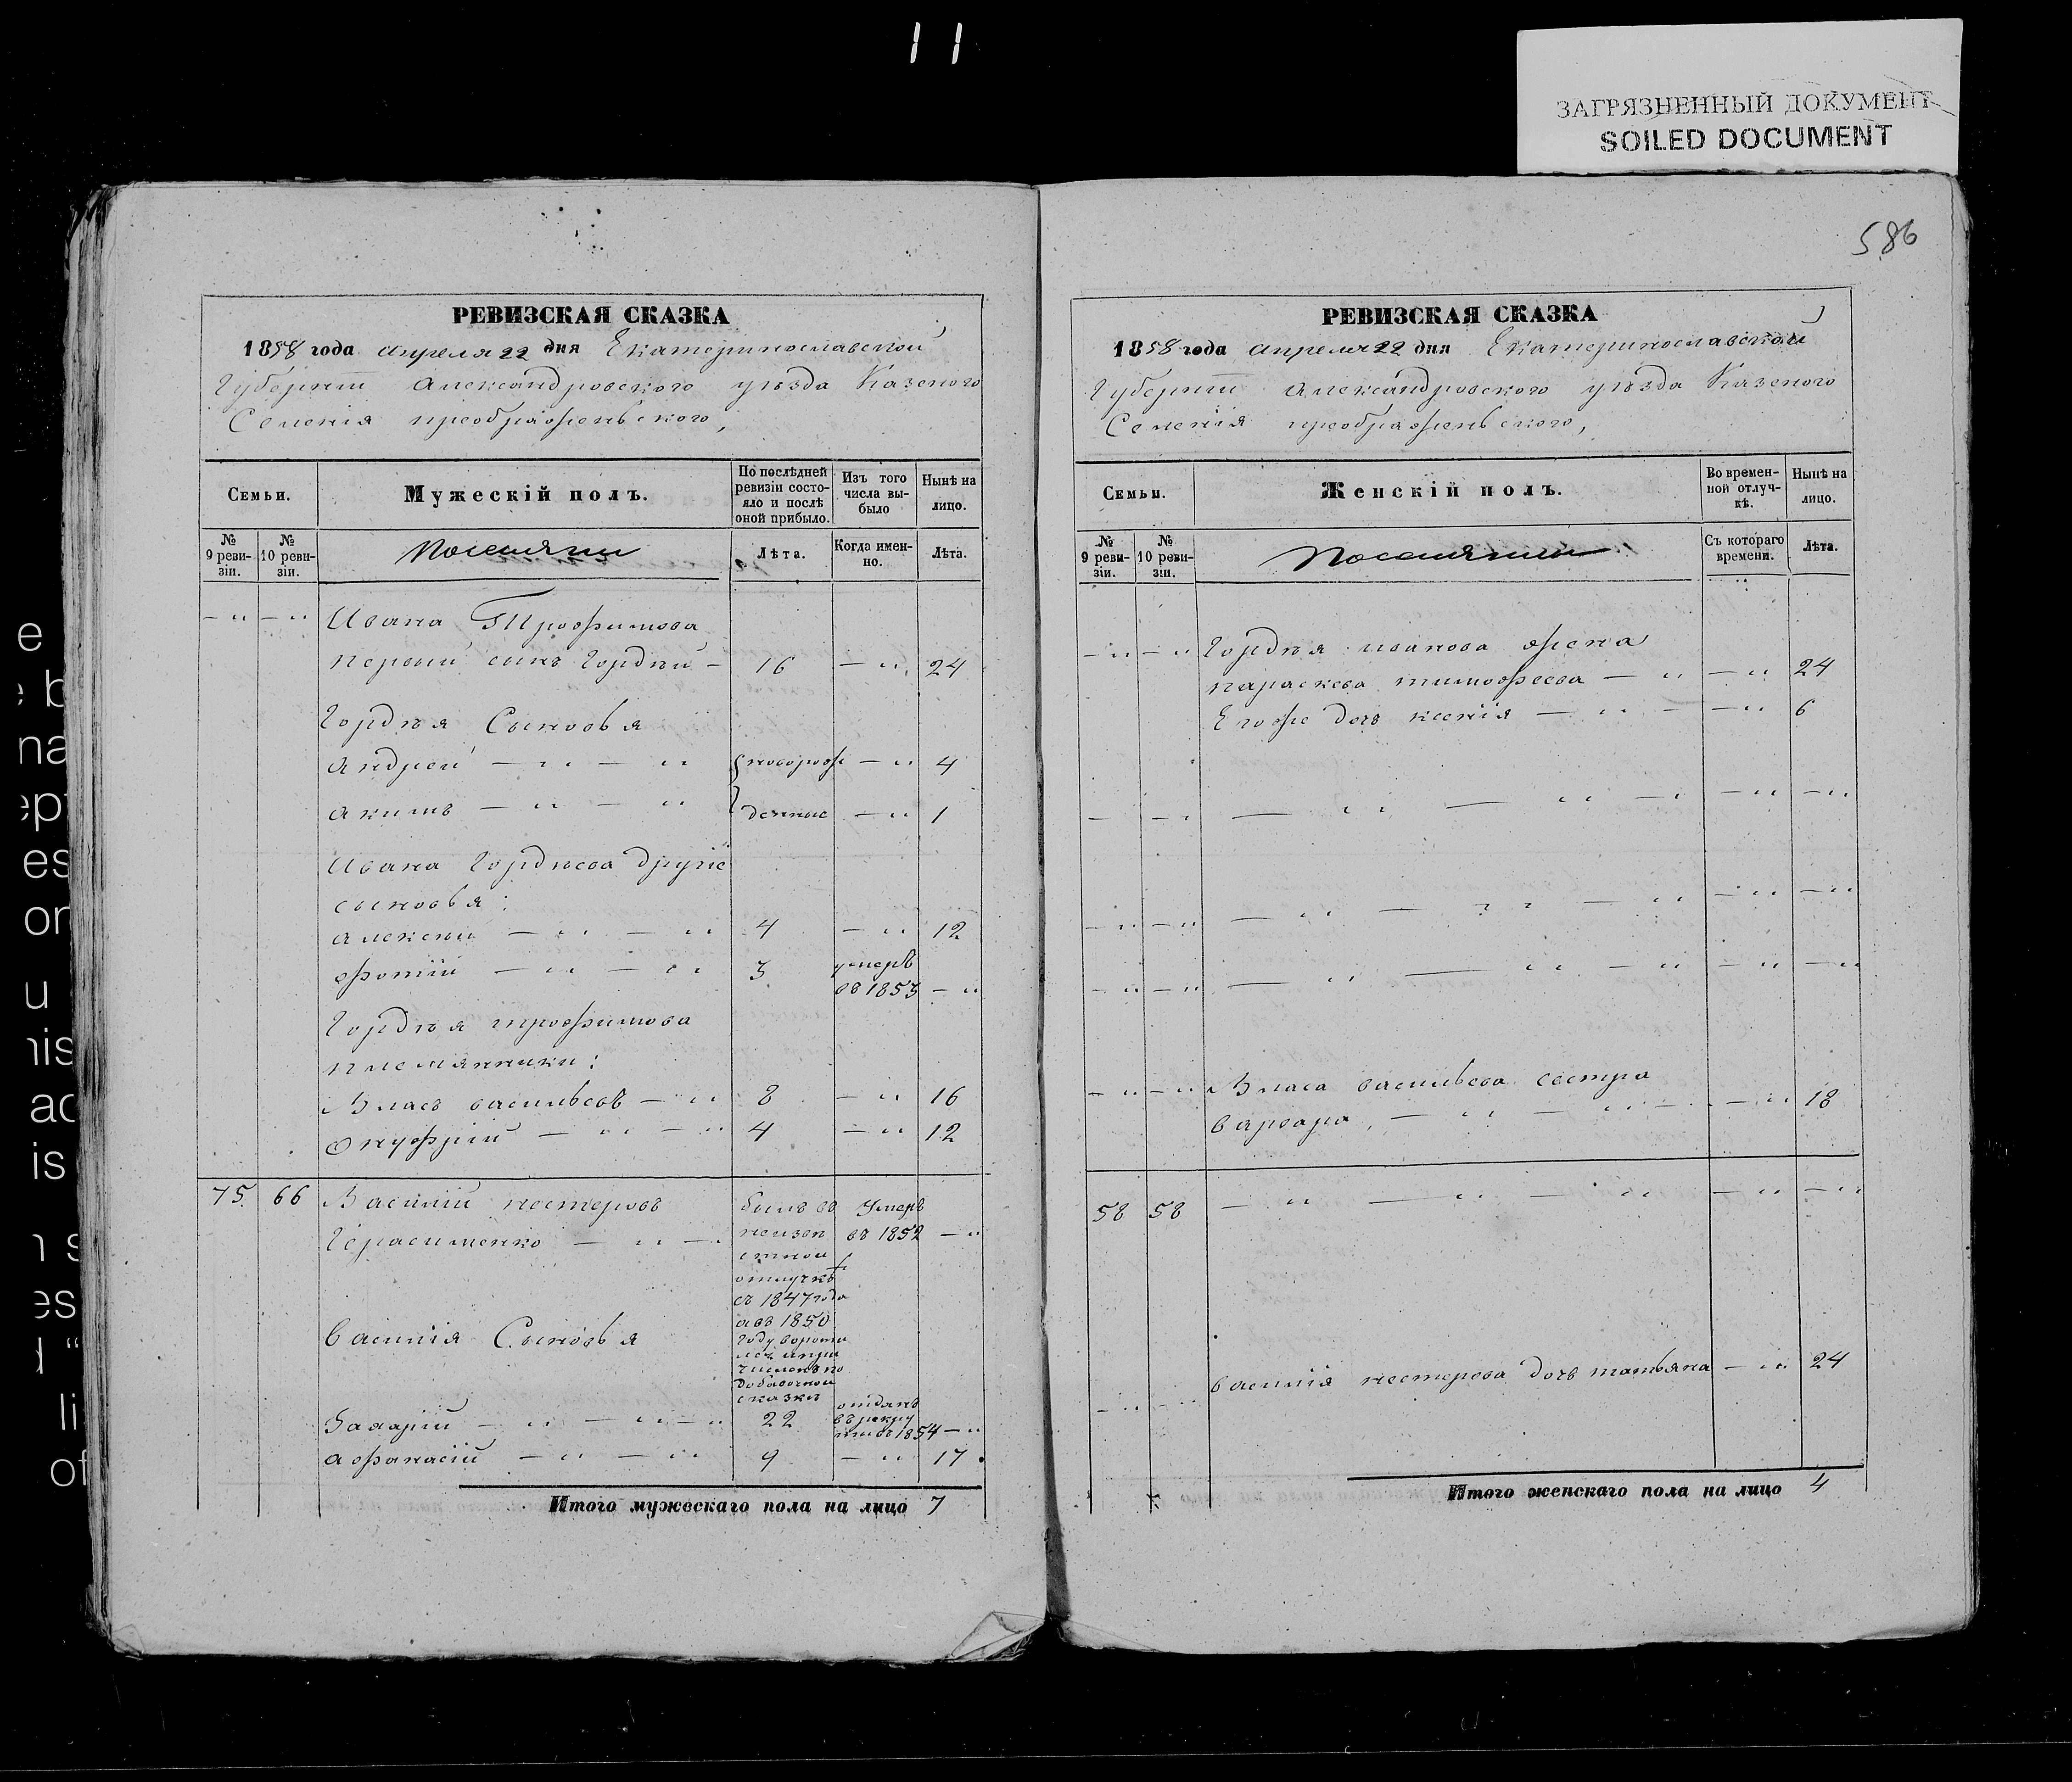 11
ЗАГРЯЗНЕННЫЙ ДОКУМЕНТ
SOILED DOCUMENT
586
РЕВИЗСКАЯ СКАЗКА
1858 года апреля 22 дня Екатеринославской
Губернии Александровского уѣзда Казеного
Селенія преображеньского,
Семьи.
Мужескій полъ.
По послѣдней ревизіи состо-
яло и послѣ
оной прибыло.
Изъ того
числа вы-
было
Нынѣ на
лицо.
№
9 реви-
зіи.
№
10 реви-
зіи.
Поселяни
Лѣта.
Когда имен-
но.
Лѣта.
— „ — „ Ивана Трофимова
первый сынъ Гордѣй — 16 — „ 24
Гордѣя Сыновья
андрей — „ — „ новорож — „ 4
акимъ — „ — „ денные — „ 1
Ивана Гордѣева другіе
сыновья:
алексѣй — „ — „ 4 — „ 12
фотій — „ — „ 3 умеръ
въ 1853 — „
Гордѣя трофимова
племянники:
Власъ васильевъ — „ 8 — „ 16
Онуфрій — „ — „ 4 — „ 12
75. 66 Василій нестеровъ
Герасименко — „ —
былъ въ
неизве
стной
отлучкѣ
съ 1847 года
а въ 1850
году вороти
лся и при
численъ по
добавочной
сказкѣ
Умеръ
въ 1852 — „
Василія Сыновья
Захарій — „ — „ — „ 22
отданъ
въ рекру
ти въ 1854 — „
афанасій — „ — „ 9 — „ 17
Итого мужескаго пола на лицо 7
РЕВИЗСКАЯ СКАЗКА
1858 года апреля 22 дня Екатеринославской
Губернии Александровского уѣзда Казеного
Селенія преображеньского,
Семьи.
Женскій полъ.
Во времен-
ной отлуч-
кѣ.
Нынѣ на
лицо.
№
9 реви-
зіи.
№
10 реви-
зіи.
Поселянки
Съ котораго
времени.
Лѣта.
— „ — „ Гордѣя иванова жена
параскева тимофеева — „ — „ 24
Его же дочь ксенія — „ — — „ 6
— — „ — „ — „ — — „ — „
— „ — „ — „ — „ — „ — „ — „
— „ — „ — „ — „ — „ — „ — „
— „ — „ Власа васильева сестра
варвара, — „ — „ — — „ 18
58 58 — „ — „ — „ — „ — „
— „ — „ василія нестерова дочь татьяна — „ 24
Итого женскаго пола на лицо 4